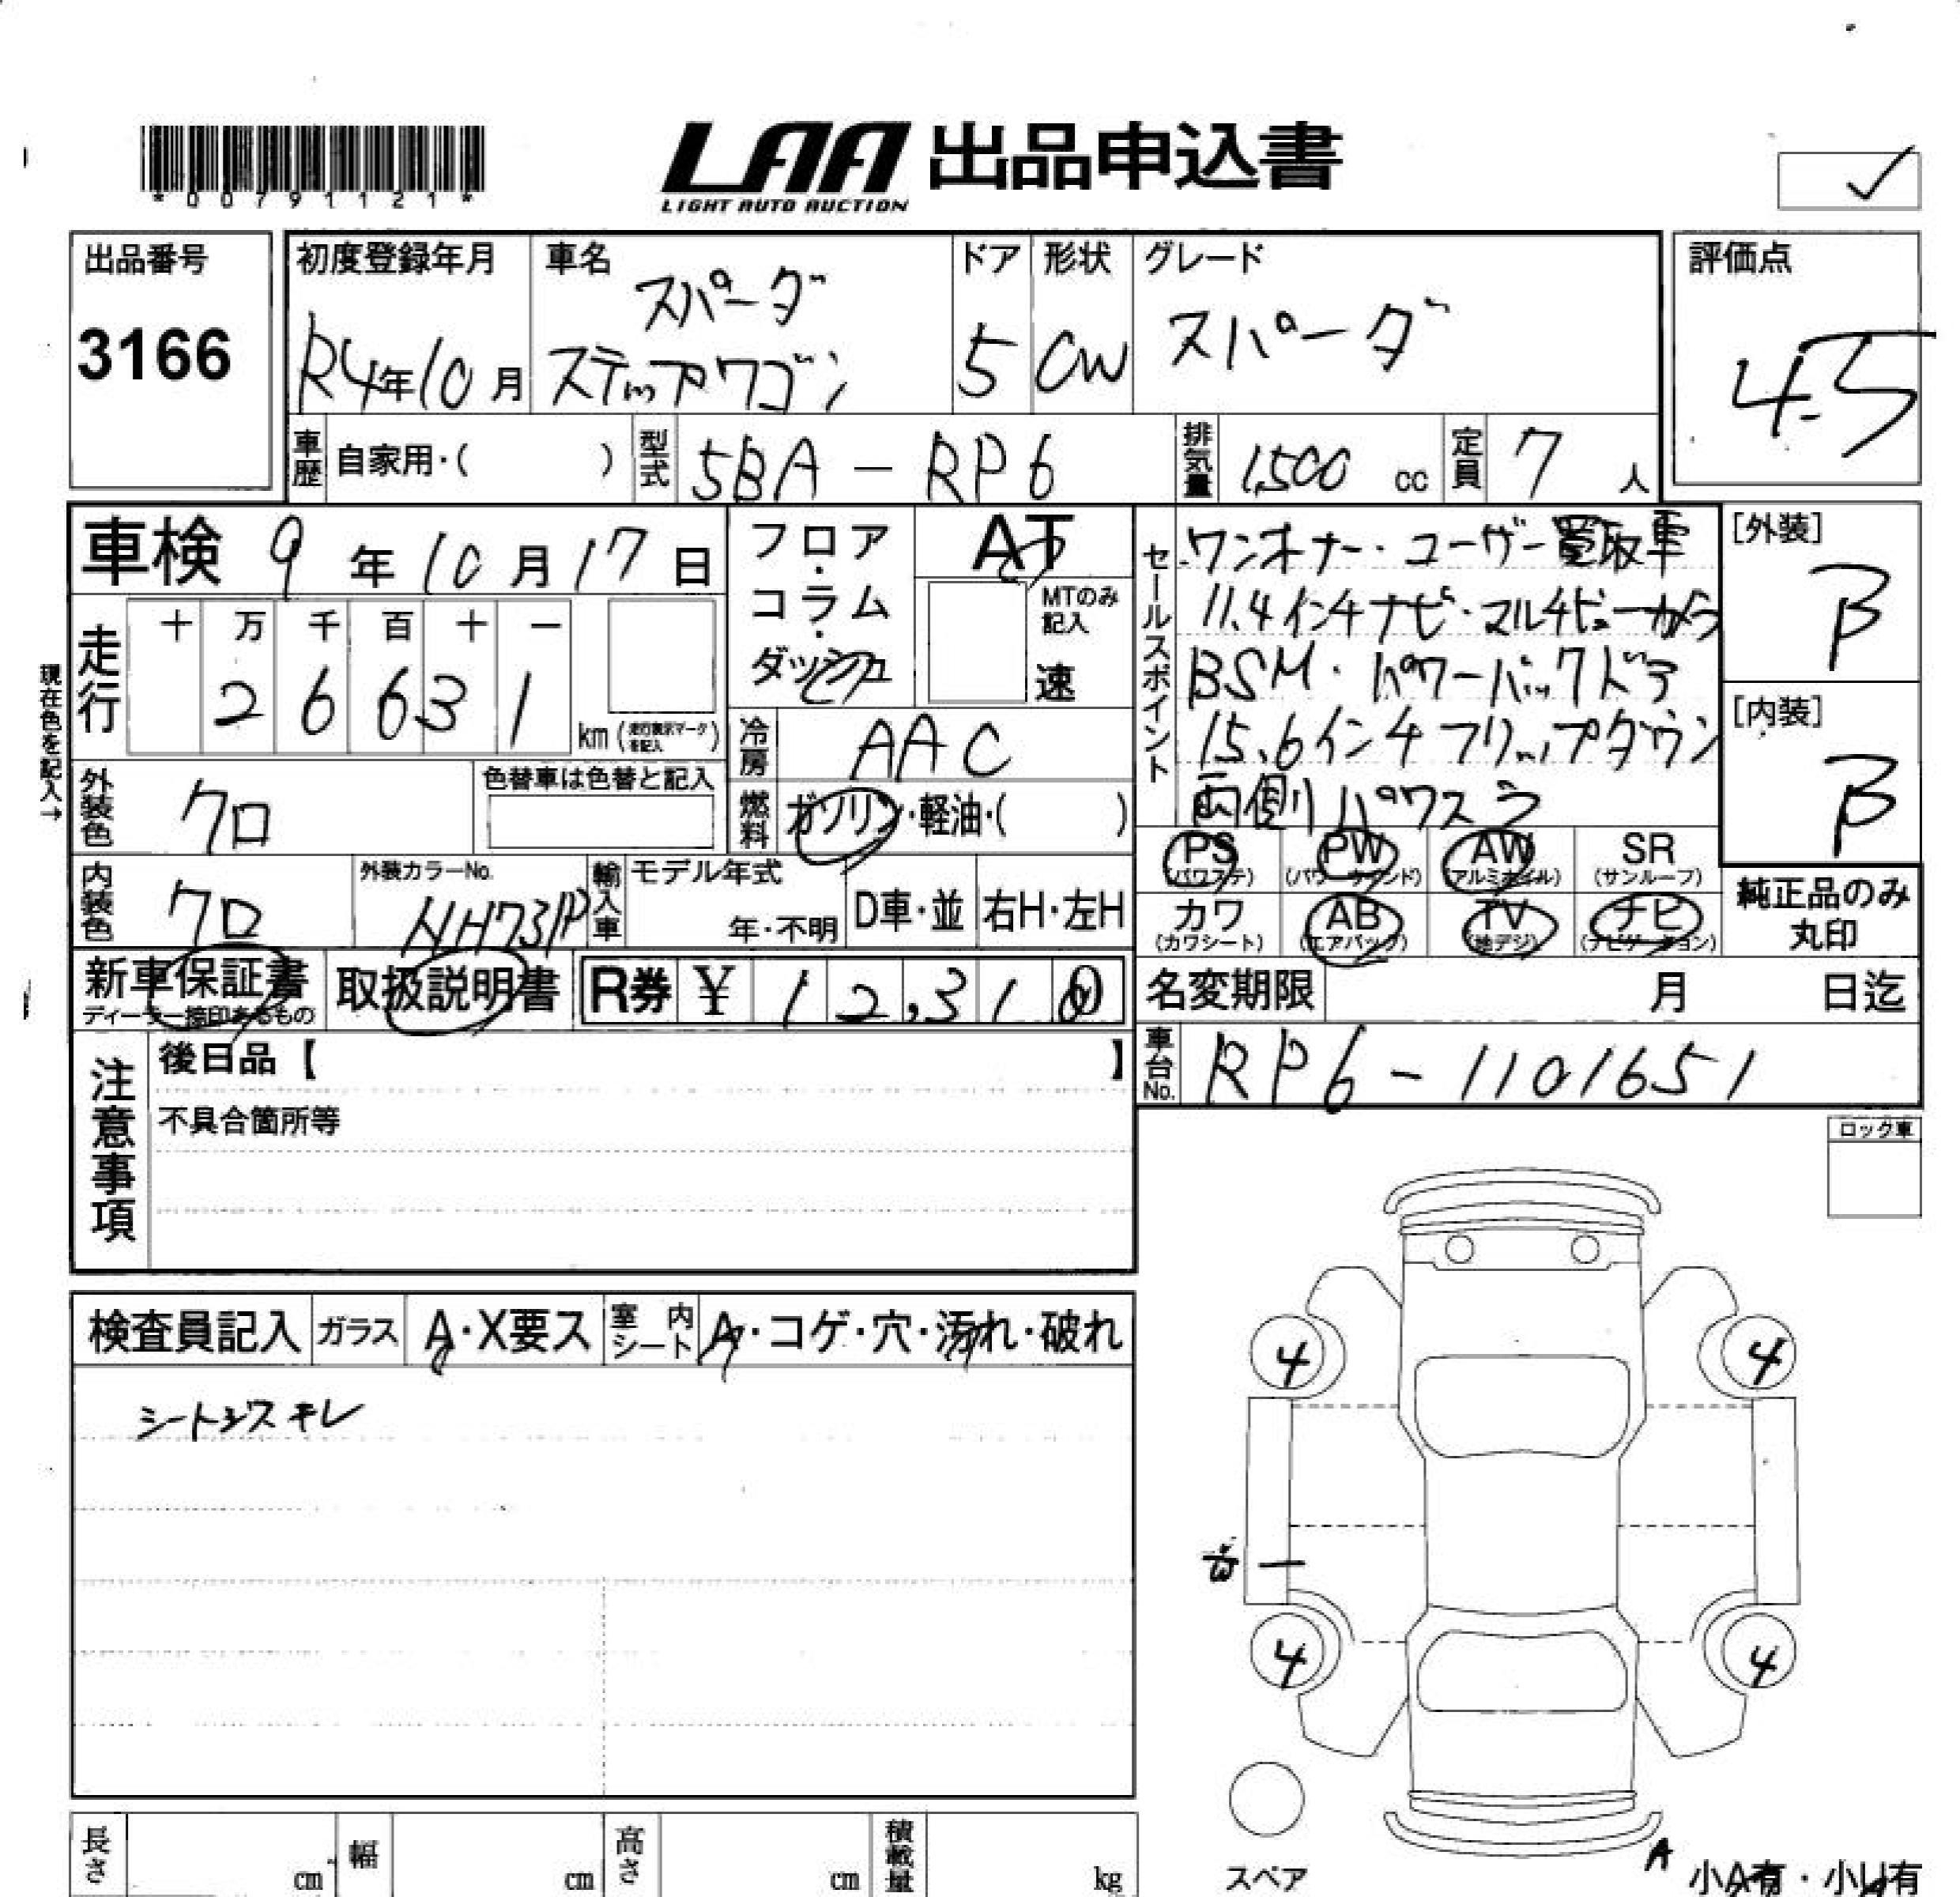 *00791121*
LAA 出品申込書
LIGHT AUTO AUCTION
出品番号
3166
初度登録年月
R4年10月
車名
スパーダ
ステップワゴン
ドア
5
形状
CW
グレード
スパーダ
評価点
4.5
車歴 自家用・( )
型式 5BA-RP6
排気量 1,500 cc
定員 7 人
車検 9年10月17日
フロア・コラム・ダッシュ
AT
MTのみ記入
速
セールスポイント
ワンオナー・ユーザー買取車
11.4インチナビ・マルチビューカメラ
BSM・パワーバックドア
15.6インチフリップダウン
両側パワスラ
[外装]
B
[内装]
B
現在色を記入→
走行 十 万 千 百 十 一
2 6 6 3 1 km
外装色 クロ
色替車は色替と記入
冷房 AAC
燃料 ガソリン・軽油・( )
内装色 クロ
外装カラーNo.
NH731P
輸入車 モデル年式
年・不明 D車・並 右H・左H
PS (パワステ) PW (パワーウインド) AW (アルミホイル) SR (サンルーフ)
カワ (カワシート) AB (エアバッグ) TV (地デジ) ナビ (ナビゲーション)
純正品のみ
丸印
新車保証書
ディーラー捺印あるもの
取扱説明書
R券 ¥ 12,310
名変期限 月 日迄
車台No. RP6-1101651
注意事項
後日品【 】
不具合箇所等
ロック車
検査員記入 ガラス A・X要ス 室内シート A・コゲ・穴・汚れ・破れ
4 4
4 4
スペア
A
小A有・小U有
長さ cm 幅 cm 高さ cm 積載量 kg